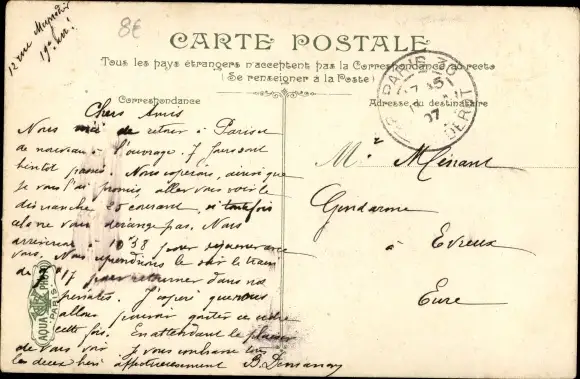 12 rue
19e arr.
8€
CARTE POSTALE
Tous les pays étrangers n'acceptent pas la Correspondance au recto
(Se renseigner à la Poste)
Correspondance
Adresse du destinataire
PARIS
07
Chers Amis
Nous de retour à Paris et
de nouveau à l'ouvrage. 7 jours sont
bientôt passés. Nous espérons, ainsi que
je vous l'ai promis, aller vous voir le
dimanche 25 courant, si toutefois
cela ne vous dérange pas. Nous
arriverons à 10h38 pour
vous. Nous reprendrons le soir le train
de 17 pour retourner dans nos
pénates. J'espère que nous
allons pouvoir goûter ce cidre
cette fois. En attendant le plaisir
de vous voir je vous embrasse
les deux bien affectueusement B.
Mr Ménant
Gendarme
à Evreux
Eure
AQUA PHOT
PARIS